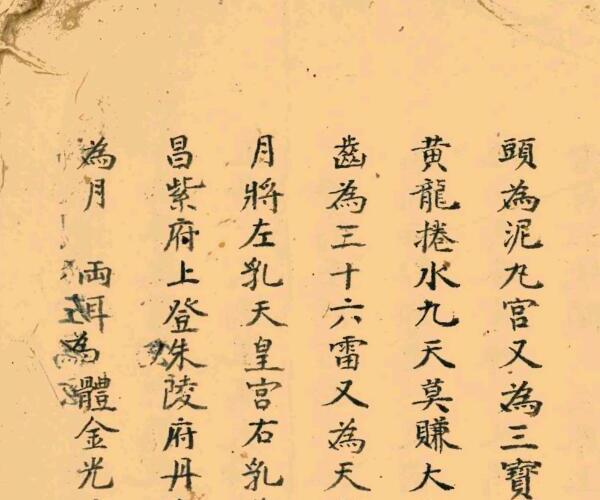 頭為泥丸宮又為三寶
黃龍捲水九天莫賺大
齒為三十六雷又為天
月將左乳天皇宮右乳
昌紫府上登朱陵府丹
為月 兩耳為體金光